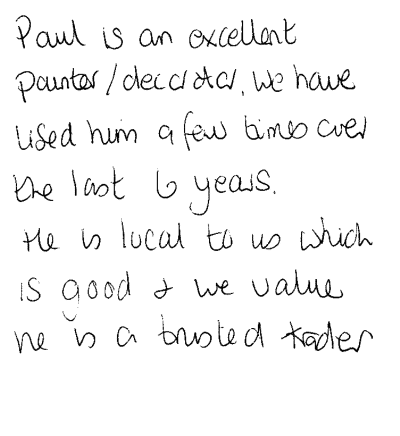 Paul is an excellent
painter/decorator, we have
used him a few times over
the last 6 years.
He is local to us which
is good & we value
he is a trusted trader